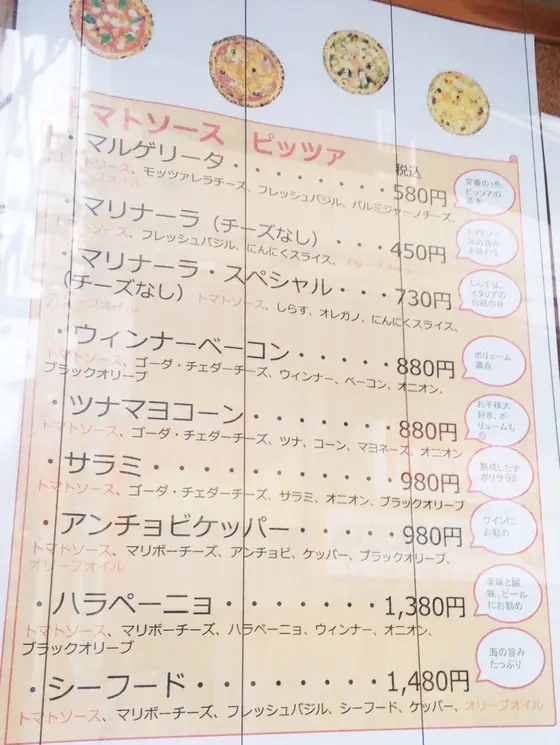 トマトソース ピッツァ
税込
・マルゲリータ・・・・・・・・580円
トマトソース、モッツァレラチーズ、フレッシュバジル、パルミジャーノチーズ、
オリーブオイル
定番の3色
ピッツァの
基本
・マリナーラ（チーズなし）・・・450円
トマトソース、フレッシュバジル、にんにくスライス、オリーブオイル
トマトソー
スの旨み
を味わう
・マリナーラ・スペシャル・・・730円
（チーズなし）トマトソース、しらす、オレガノ、にんにくスライス、
オリーブオイル
しらすは、
イタリアの
伝統の味
・ウィンナーベーコン・・・・・880円
トマトソース、ゴーダ・チェダーチーズ、ウィンナー、ベーコン、オニオン、
ブラックオリーブ
ボリューム
満点
・ツナマヨコーン・・・・・・・880円
トマトソース、ゴーダ・チェダーチーズ、ツナ、コーン、マヨネーズ、オニオン
お子様大
好き、ボ
リュームも
・サラミ・・・・・・・・・・・980円
トマトソース、ゴーダ・チェダーチーズ、サラミ、オニオン、ブラックオリーブ
熟成したナ
ポリサラミ
・アンチョビケッパー・・・・・980円
トマトソース、マリボーチーズ、アンチョビ、ケッパー、ブラックオリーブ、
オリーブオイル
ワインに
お勧め
・ハラペーニョ・・・・・・・・1,380円
トマトソース、マリボーチーズ、ハラペーニョ、ウィンナー、オニオン、
ブラックオリーブ
辛味と酸
味、ビール
にお勧め
・シーフード・・・・・・・・・1,480円
トマトソース、マリボーチーズ、フレッシュバジル、シーフード、ケッパー、オリーブオイル
海の旨み
たっぷり